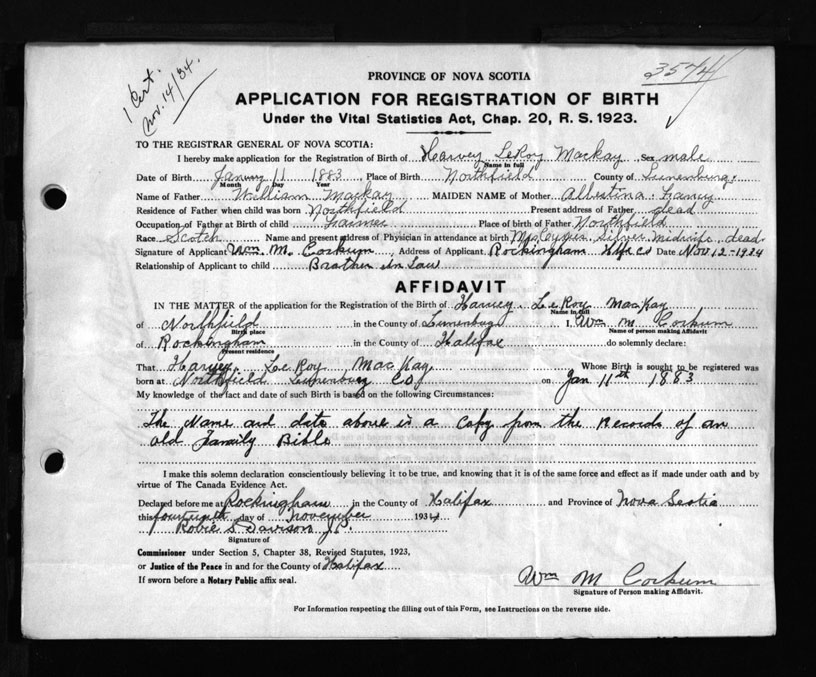 1 Cert.
Nov. 14/34.
3574
PROVINCE OF NOVA SCOTIA
APPLICATION FOR REGISTRATION OF BIRTH
Under the Vital Statistics Act, Chap. 20, R. S. 1923.
TO THE REGISTRAR GENERAL OF NOVA SCOTIA:
I hereby make application for the Registration of Birth of Harvey LeRoy Mackay Sex male
Name in full
Date of Birth January 11 1883 Place of Birth Northfield County of Lunenburg
Month Day Year
Name of Father William Mackay MAIDEN NAME of Mother Albertina
Residence of Father when child was born Northfield Present address of Father dead
Occupation of Father at Birth of child Farmer Place of birth of Father Northfield
Race Scotch Name and present address of Physician in attendance at birth Mrs Silver Midwife dead
Signature of Applicant Wm. M. Corkum Address of Applicant Rockingham Hfx Co Date Nov 12-1934
Relationship of Applicant to child Brother in Law
AFFIDAVIT
IN THE MATTER of the application for the Registration of the Birth of Harvey LeRoy MacKay
Name in full
of Northfield in the County of Lunenburg I, Wm M Corkum
Birth place Name of person making Affidavit
of Rockingham in the County of Halifax do solemnly declare:
Present residence
That Harvey LeRoy MacKay Whose Birth is sought to be registered was
born at Northfield Lunenburg Co on Jan 11th 1883
My knowledge of the fact and date of such Birth is based on the following Circumstances:
The Name and date above is a Copy from the Records of an
old Family Bible
I make this solemn declaration conscientiously believing it to be true, and knowing that it is of the same force and effect as if made under oath and by
virtue of The Canada Evidence Act.
Declared before me at Rockingham in the County of Halifax and Province of Nova Scotia
this fourteenth day of November 1934
Robie S. Davison J.P.
Signature of
Commissioner under Section 5, Chapter 38, Revised Statutes, 1923,
or Justice of the Peace in and for the County of Halifax
If sworn before a Notary Public affix seal.
Wm M Corkum
Signature of Person making Affidavit.
For Information respecting the filling out of this Form, see Instructions on the reverse side.